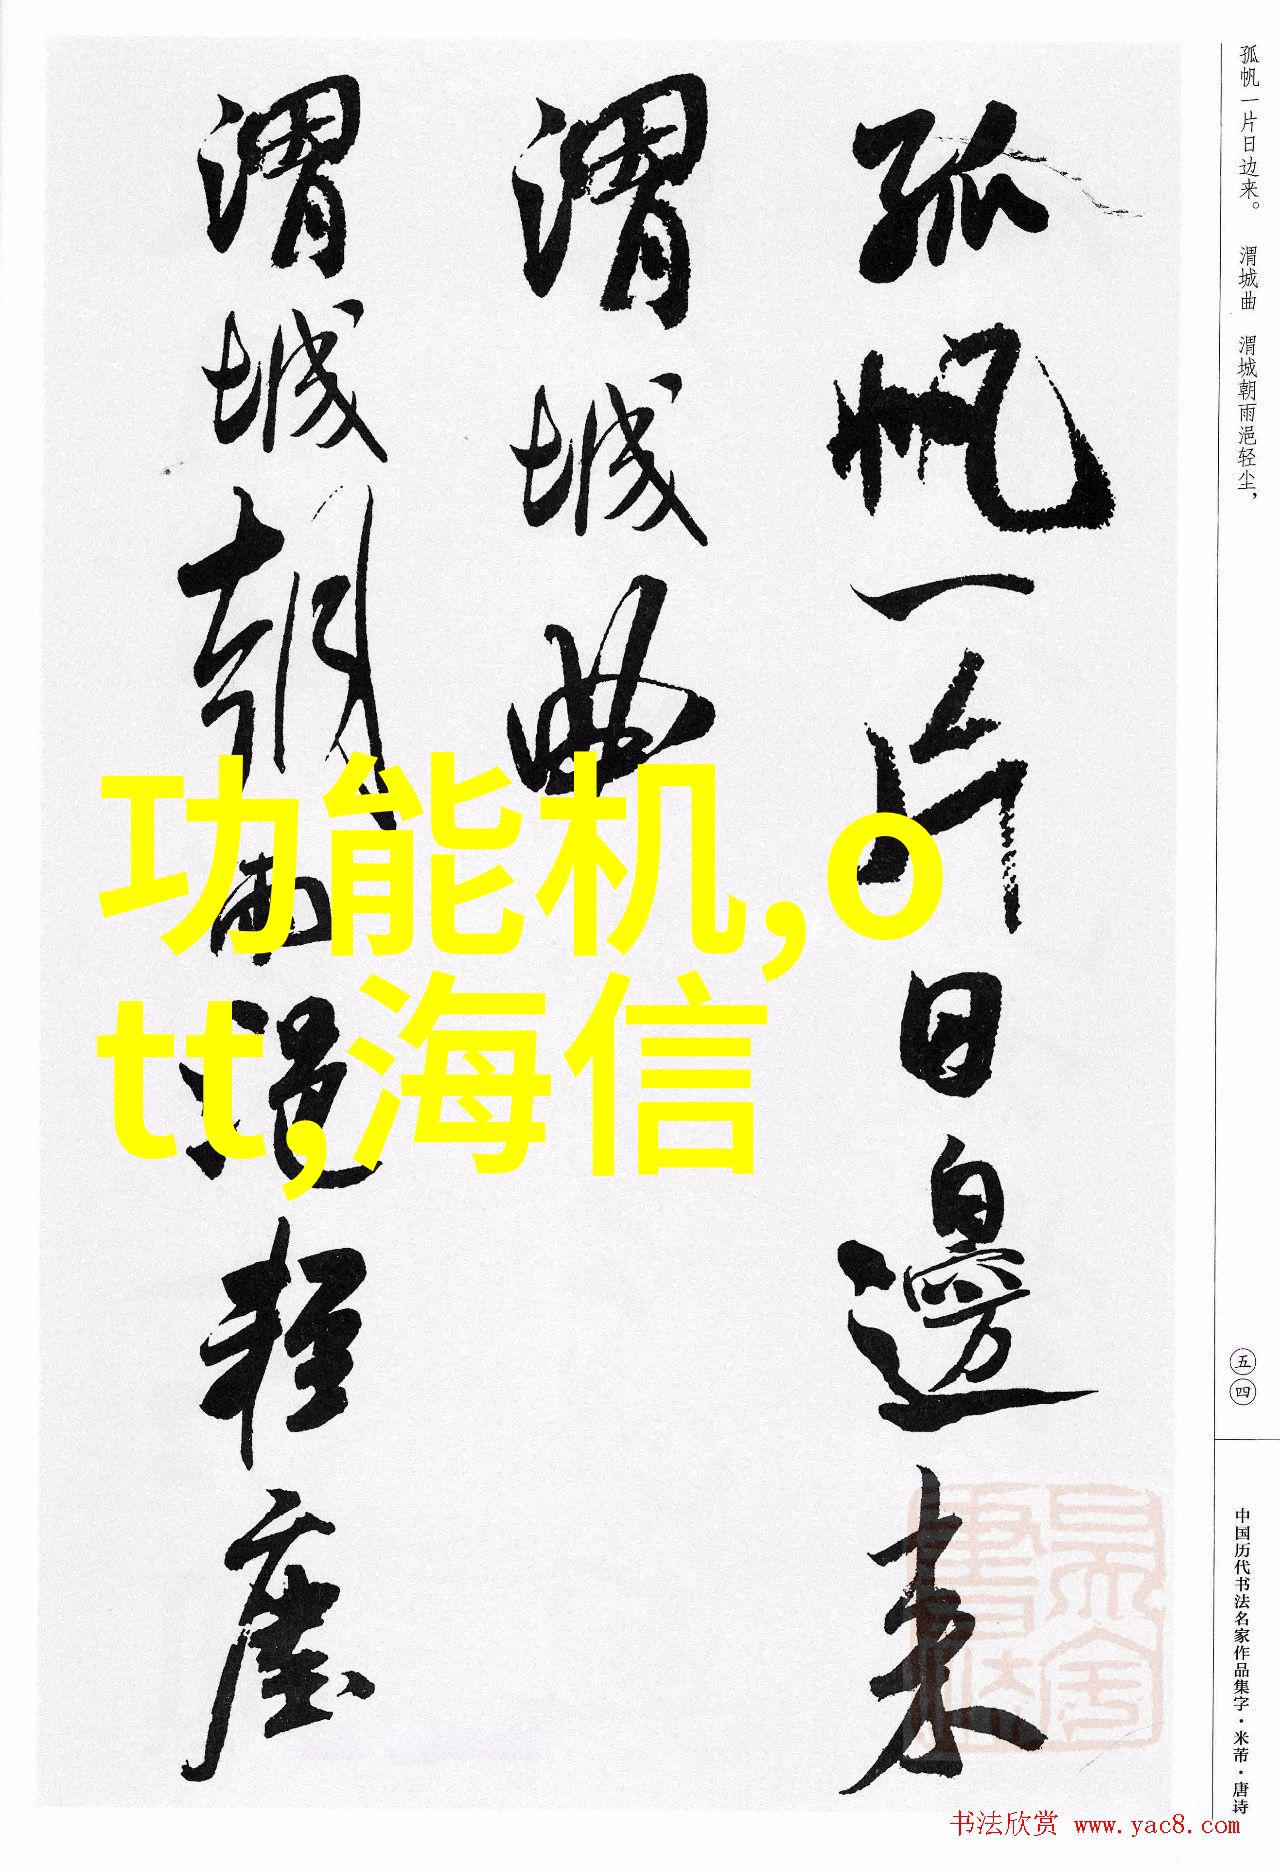 孤帆一片日边来。 渭城曲 渭城朝雨浥轻尘，
孤帆一片日邊来
渭城曲
渭城朝雨浥轻塵
功能机,o
tt,海信
五四
中国历代书法名家作品集字·米芾·唐诗
书法欣赏 www.yac8.com